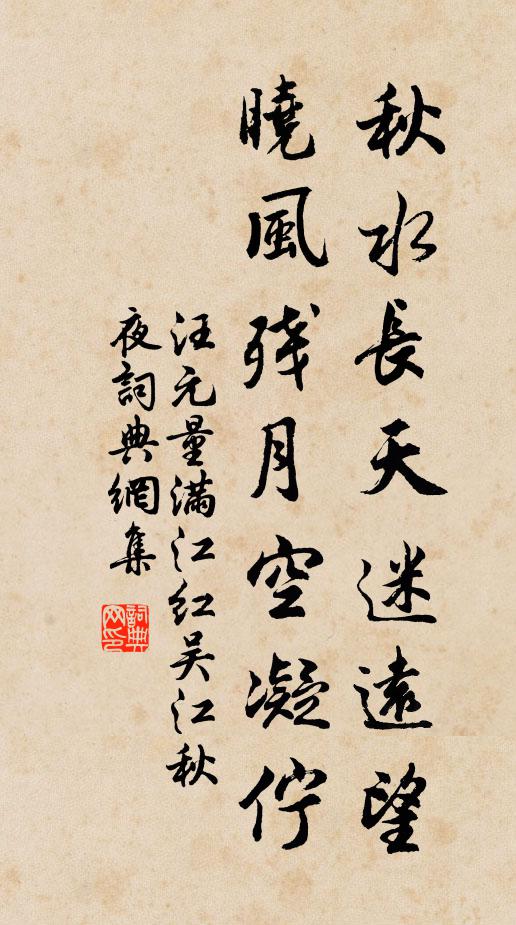 秋水長天迷遠望
曉風残月空凝佇
汪元量满江红吴江秋
夜詞典網集
詞典
网印